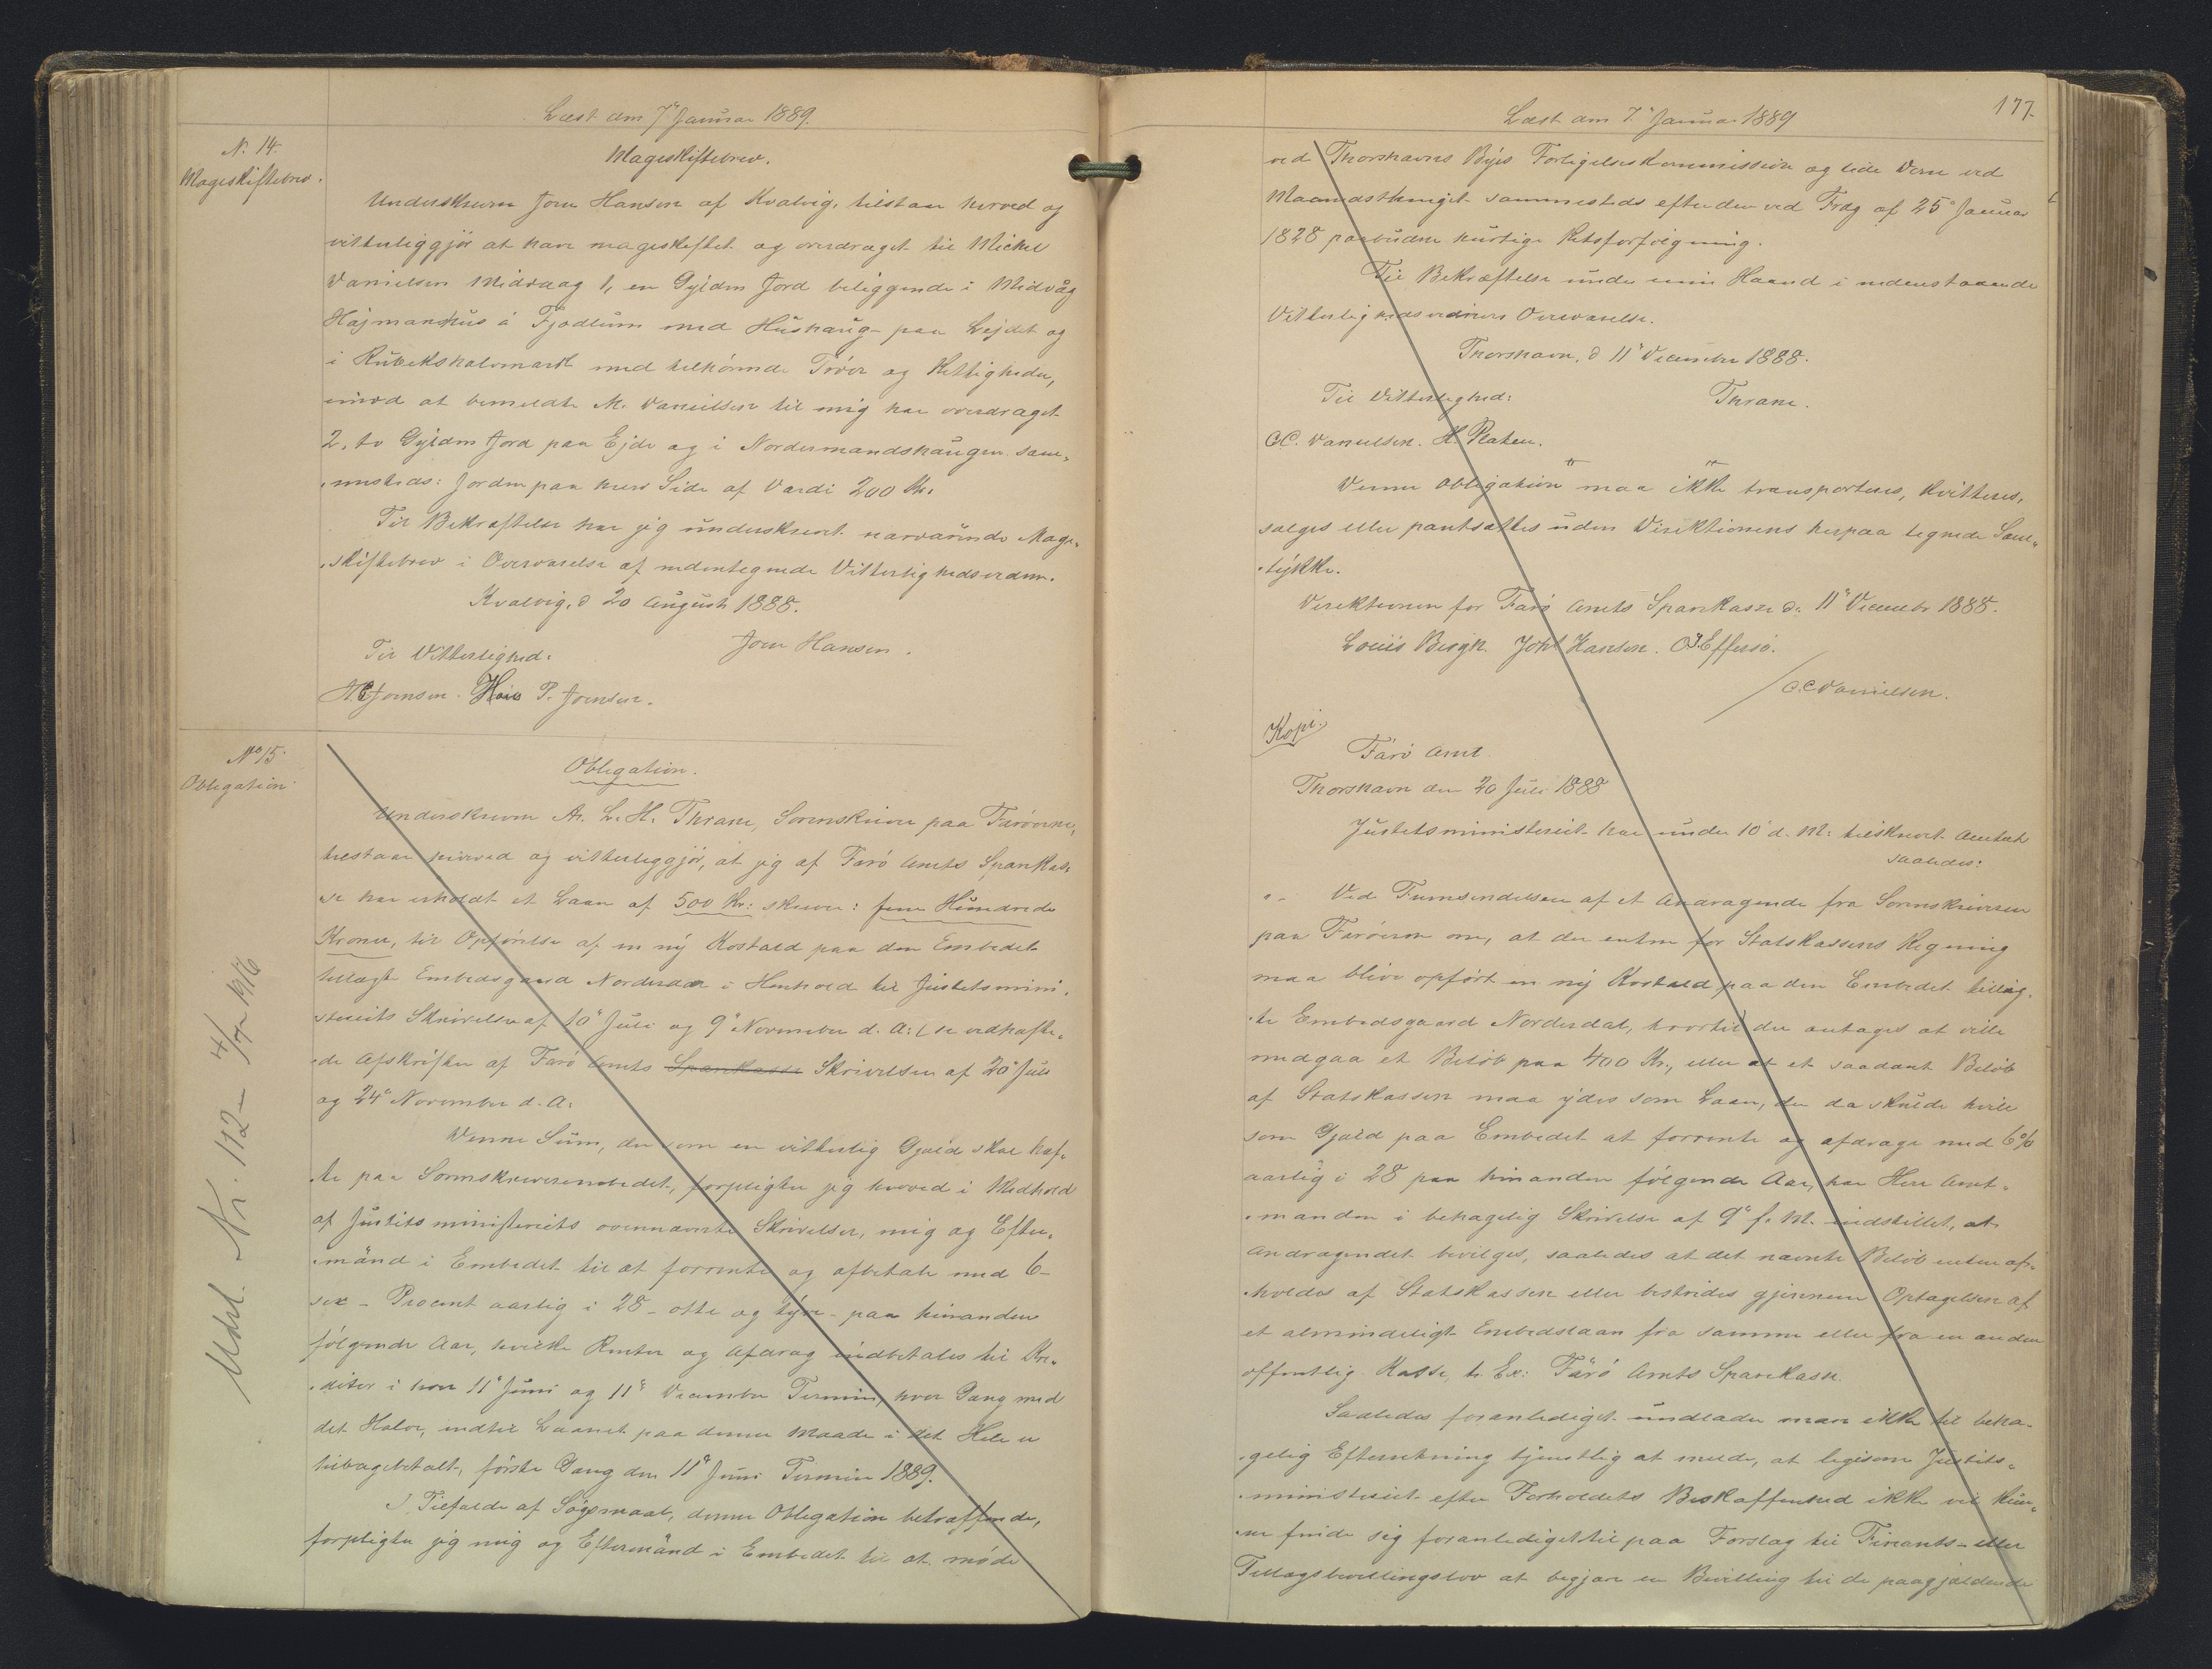 Læst den 7' Januar 1889.
N. 14.
Mageskiftebrev.
Mageskiftebrev.
Underskreven Joen Hansen af Kvalvig, tilstaar herved og
vitterliggjør at have mageskiftet og overdraget til Michel
Danielsen Midvaag 1, en Gylden Jord beliggende i Midvåg
Højmanshus á Fjødlum med Hushaug paa Lejdet og
i med tilhørende og Rettigheder,
imod at bemeldte M. Danielsen til mig har overdraget
2, to Gylden Jord paa Ejde og i Nordermandshaugen sam-
mesteds: Jorden paa hver Side af Værdi 200 Kr.
Til Bekræftelse har jeg underskrevet nærværende Mage-
skiftebrev i Overværelse af nedentegnede Vitterlighedsvidner.
Kvalvig, d 20 August 1888.
Joen Hansen.
Til Vitterlighed:
Joensen. P. Joensen.
No 15.
Obligation
Obligation.
Underskreven A. L. H. Thrane, Sorenskriver paa Færøerne,
tilstaar herved og vitterliggjør, at jeg af Færø Amts Sparekas-
se har erholdt et Laan af 500 Kr: skriver: fem Hundrede
Kroner, til Opførelse af en ny Kostald paa den Embedet
tillagte Embedsgaard Norderdal i Henhold til Justitsmini-
steriets Skrivelse af 10' Juli og 9' November d. A: (se vedhæfte-
de Afskrifter af Færø Amts Sparekasse Skrivelser af 20' Juli
og 24' November d. A:
Denne Sum, der som en vitterlig Gjæld skal hæf-
te paa Sorenskriverembedet, forpligter jeg herved i Medhold
af Justitsministeriets ovennævnte Skrivelser, mig og Efter-
mænd i Embedet til at forrente og afbetale med 6-
sex - Procent aarlig i 28 - otte og tyve - paa hinanden
følgende Aar, hvilke Renter og Afdrag indbetales til Kre-
ditor i hver 11' Juni og 11' December Termin, hver Gang med
det Halve, indtil Laanet paa denne Maade i det Hele er
tilbagebetalt, første Gang den 11' Juni Termin 1889.
I Tilfælde af Søgsmaal, denne Obligation betræffende,
forpligter jeg mig og Eftermænd i Embedet til at møde
Udsl. Nr. 112 - 4/ 1916
Læst den 7' Januar 1889
177.
ved Thorshavns Byes Forligelseskommission og lide Dom ved
Maanedsthinget sammesteds efter den ved Frdg af 25' Januar
1828 paabudne hurtige Retsforfølgning.
Til Bekræftelse under min Haand i nedenstaaende
Vitterlighedsvidners Overværelse.
Thorshavn, d 11' December 1888.
Til Vitterlighed:
Thrane.
C.C. Danielsen. H. Platen.
Denne Obligation maa ikke transporteres, kvitteres,
sælges eller pantsættes uden Direktionens herpaa tegnede Sam-
tykke.
Direktionen for Færø Amts Sparekasse d. 11' Decembr 1888.
Louis Bergh. Joh Hansen. O. Effersø.
/ C.C Danielsen.
Kopi.
Færø Amt
Thorshavn den 20 Juli 1888
Justitsministeriet har under 10' d. M: tilskrevet Amtet
saaledes:
"- Ved Fremsendelsen af et Andragende fra Sorenskriveren
paa Færøerne om, at der enten for Statskassens Regning
maa blive opført en ny Kostald paa den Embedet tillag-
te Embedsgaard Norderdal, hvortil der antages at ville
medgaa et Beløb paa 400 Kr., eller at et saadant Beløb
af Statskassen maa ydes som Laan, der da skulde hvile
som Gjæld paa Embedet at forrente og afdrage med 6%
aarlig i 28 paa hinanden følgende Aar, har Herr Amt-
manden i behagelig Skrivelse af 9' f. M. indstillet, at
Andragendet bevilges, saaledes at det nævnte Beløb enten af-
holdes af Statskassen eller bestrides gjennem Optagelsen af
et almindeligt Embedslaan fra samme eller fra en anden
offentlig Kasse, t. Ex: Færø Amts Sparekasse.
Saaledes foranlediget undlader man ikke til beha-
gelig Efterretning tjenstlig at melde, at ligesom Justits-
ministeriet efter Forholdets Beskaffenhed ikke vil kun-
ne finde sig foranlediget til paa Forslag til Finants- eller
Tillægsbevillingslov at begjære en Bevilling til de paagjældende